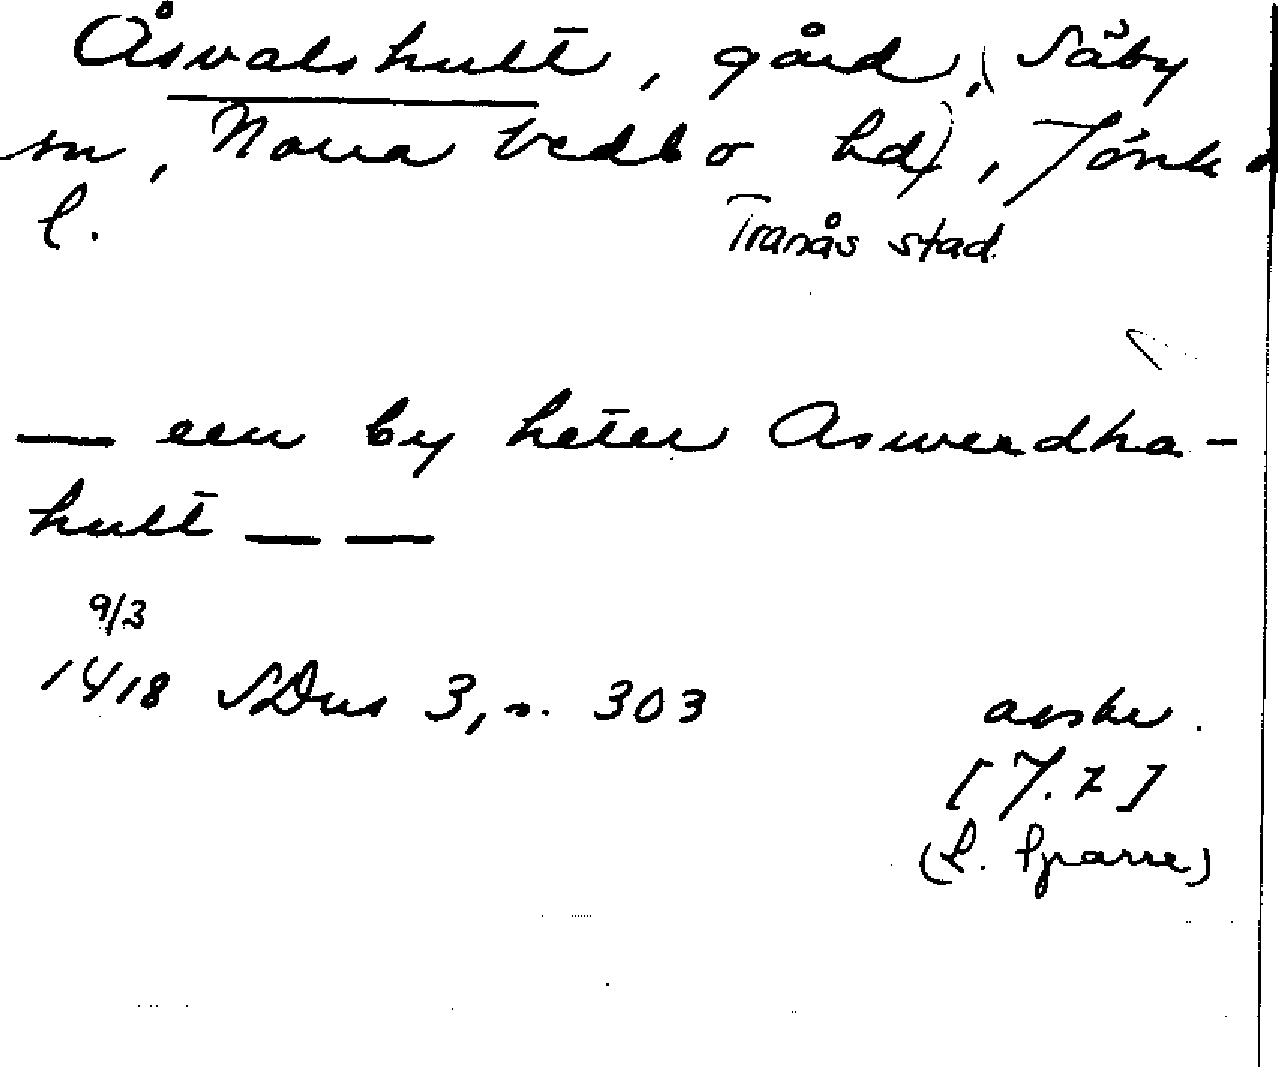 Åsvalshult, gård, (Säby
sn, Norra Vedbo hd), Jönk
l.
Tranås stad
— een by heter Aswerdha-
hult — —
9/3
1418 SDns 3, s. 303
avskr.
(L. Sparre)